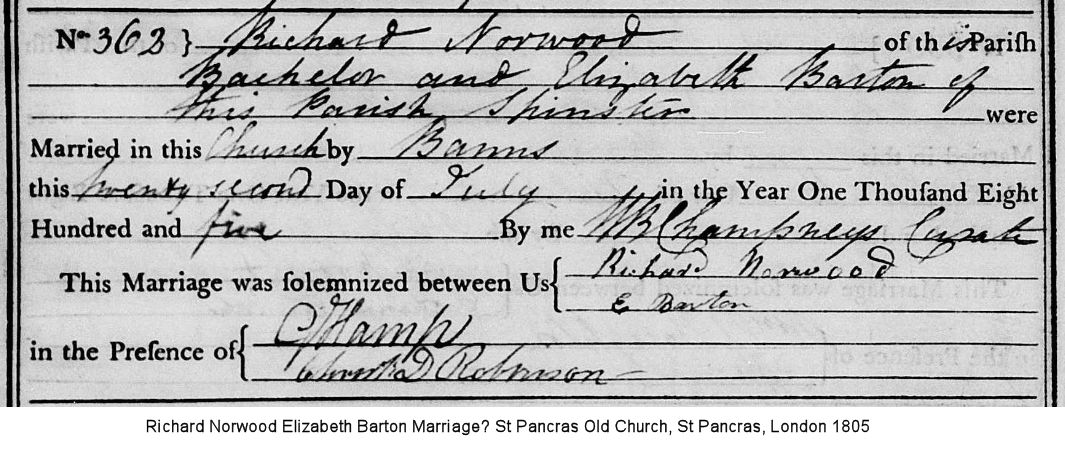 No. 363 } Richard Norwood of this Pariſh
Bachelor and Elizabeth Barton of
this Parish Spinster were
Married in this Church by Banns
this twenty second Day of July in the Year One Thouſand Eight
Hundred and five By me WB Champneys Curate
This Marriage was ſolemnized between Us { Richard Norwood
E Barton
in the Preſence of { Hamp
Robinson
Richard Norwood Elizabeth Barton Marriage? St Pancras Old Church, St Pancras, London 1805